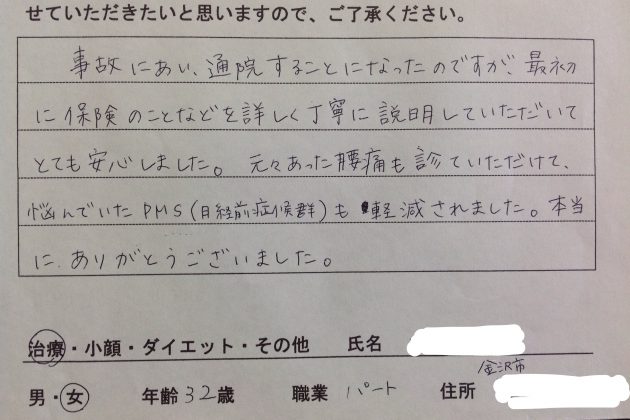 せていただきたいと思いますので、ご了承ください。
事故にあい、通院することになったのですが、最初
に保険のことなどを詳しく丁寧に説明していただいて
とても安心しました。元々あった腰痛も診ていただけて、
悩んでいたPMS(月経前症候群)も軽減されました。本当
に、ありがとうございました。
治療・小顔・ダイエット・その他 氏名
金沢市
男・女 年齢32歳 職業 パート 住所